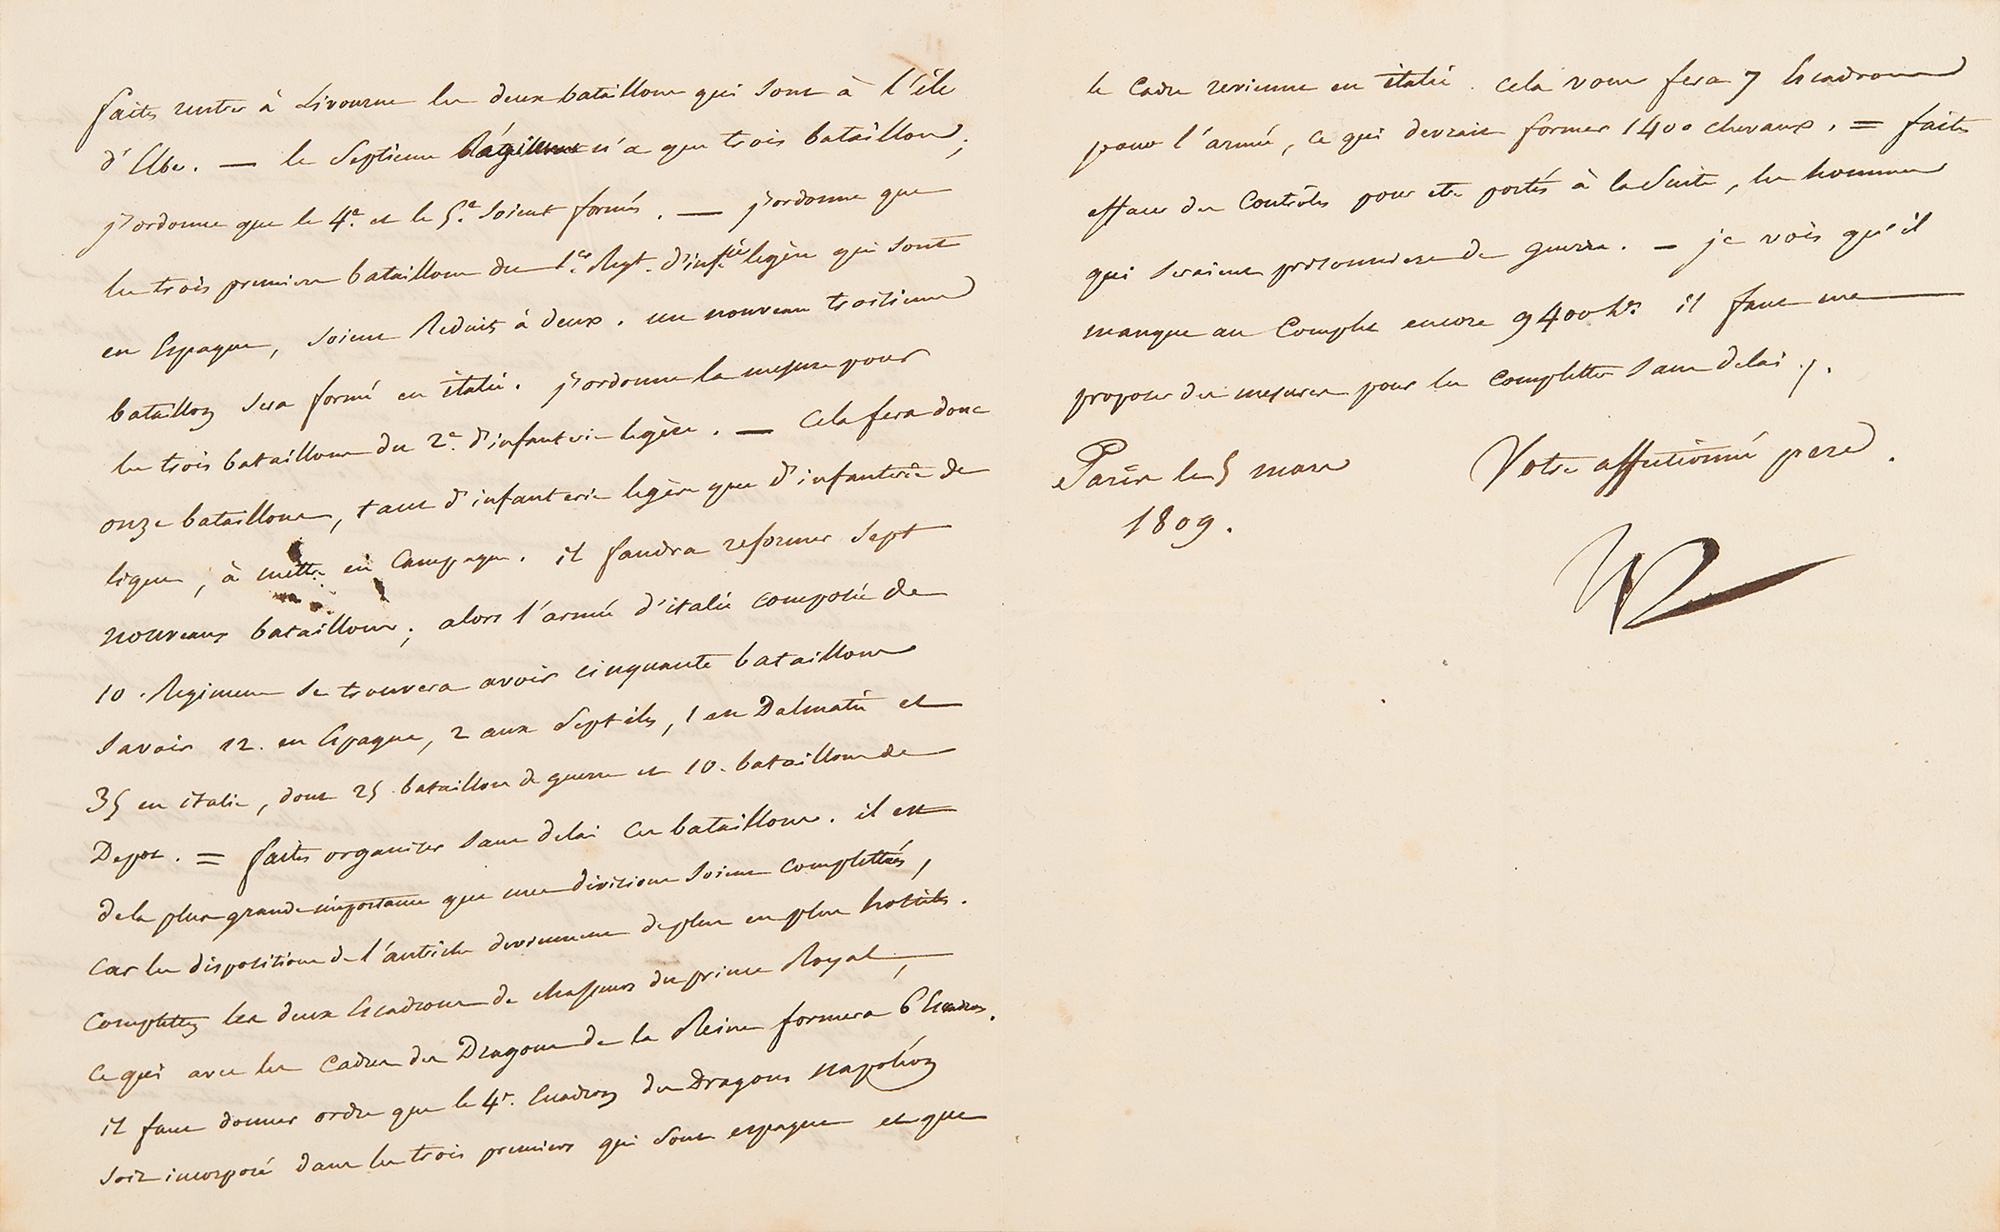 faites rentrer à Livourne les deux bataillons qui sont à l'ile
d'Elbe. — le Septieme n'a que trois bataillons;
j'ordonne que le 4e. et le 5e. soient formés. — j'ordonne que
les trois premiers bataillons du 1er. Regt. d'infie légère qui sont
en Espagne, soient Réduits à deux. un nouveau troisieme
bataillon sera formé en italie. j'ordonne la mesure pour
les trois bataillons du 2e. d'infanterie légère. — Cela fera donc
onze bataillons, tant d'infanterie légère que d'infanterie de
ligne, à mettre en Campagne. il faudra reformer Sept
nouveaux bataillons; alors l'armée d'italie composée de
10. Regimens se trouvera avoir cinquante bataillons
Savoir 12. en Espagne, 2 aux Sept iles, 1 en Dalmatie et
35 en italie, dont 25 bataillons de guerre et 10. bataillons de
Depot. = faites organiser sans delai ces bataillons. il est
de la plus grande importance que vos divisions soient complettées,
car les dispositions de l'autriche deviennent de plus en plus hostiles.
Complettez les deux Escadrons de chasseurs du prince Royal,
ce qui avec les Cadres des Dragons de la Reine formera 6 Escadrons.
il faut donner ordre que le 4e. Escadron des Dragons napoléon
soit incorporé dans les trois premiers qui sont espagne et que
le Cadre revienne en italie. Cela vous fera 7 Escadrons
pour l'armée, ce qui devrait former 1400 chevaux. = faites
effacer des Contrôles pour etre portés à la Suite, les hommes
qui seraient prisonniers de guerre. — je vois qu'il
manque au Complet encore 9400 hes. il faut me
proposer des mesures pour les completter sans delai ./.
Paris le 5 mars
1809.
Votre affectionné pere.